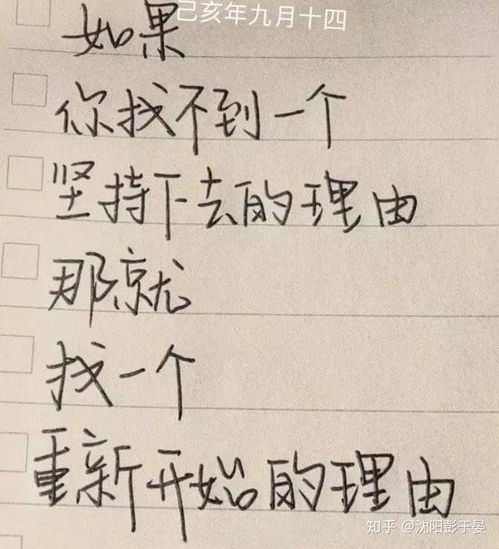 己亥年九月十四
如果
你找不到一个
坚持下去的理由
那就
找一个
重新开始的理由
知乎 @沈阳彭于晏